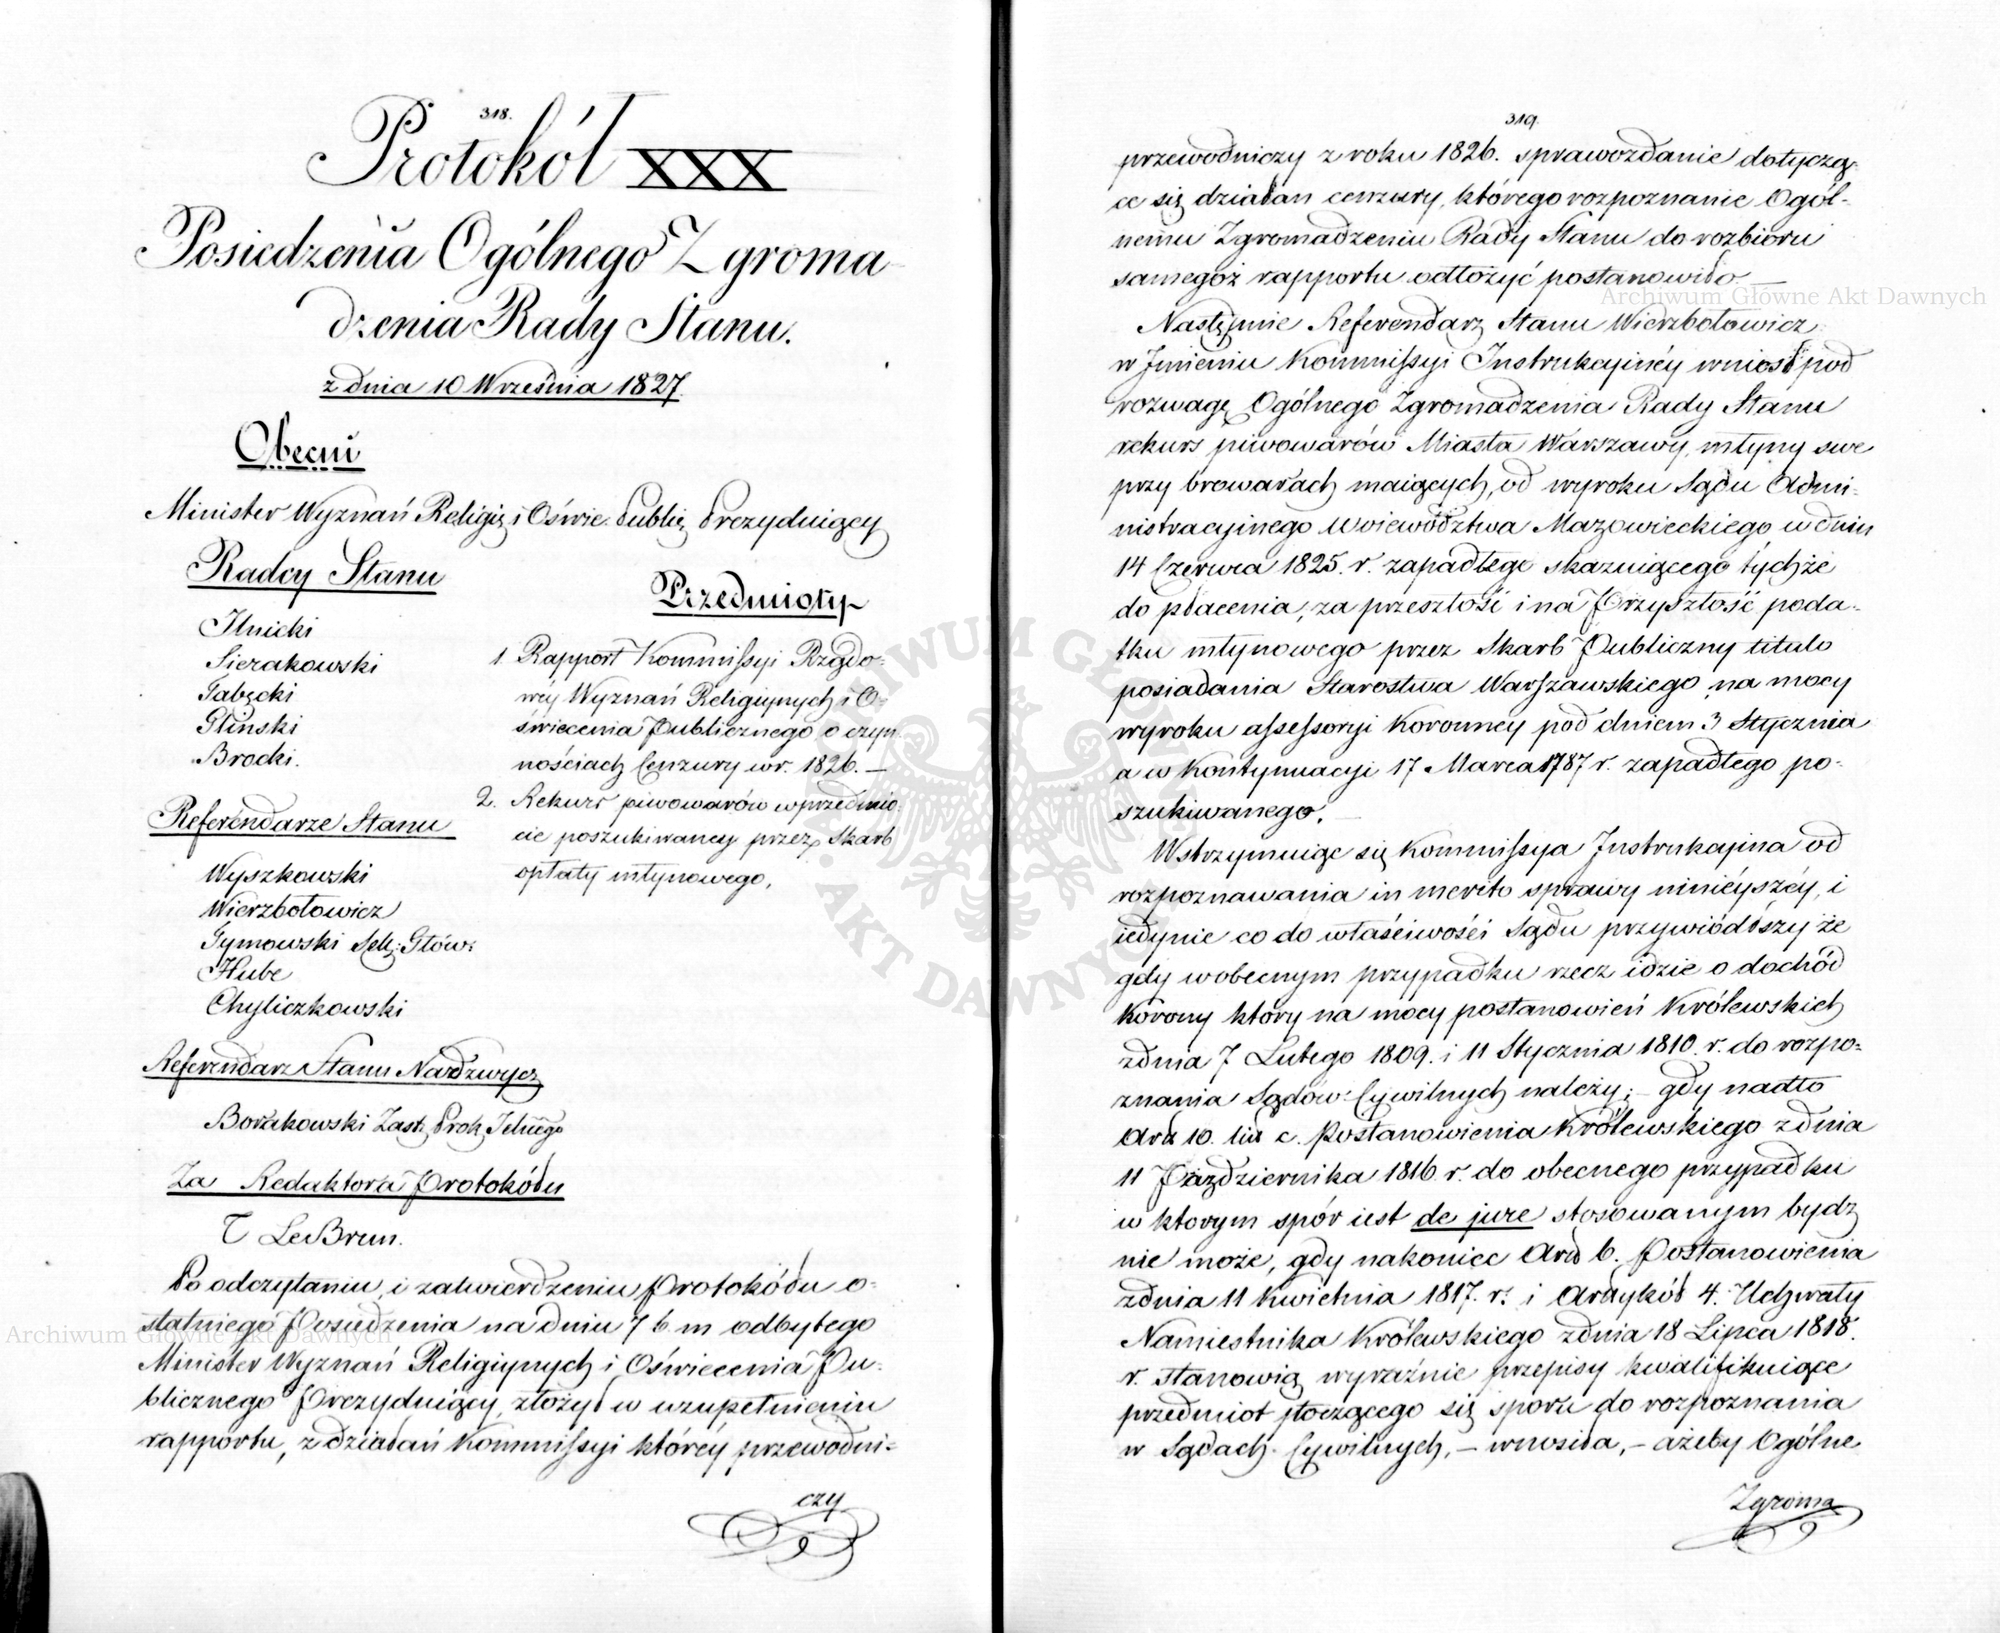 318.
Protokół XXX
Posiedzenia Ogólnego Zgroma-
dzenia Rady Stanu.
z dnia 10 Września 1827.
Obecni
Minister Wyznań Religij: i Oświe. Publi: Prezyduiący
Radcy Stanu
Ilnicki
Sierakowski
Tabęcki
Gliński
Brocki.
Referendarze Stanu
Wyszkowski
Wierzbołowicz
Tymowski Sek: Głów:
Hube
Chyliczkowski
Referendarz Stanu Nadzwycz
Borakowski Zast: Prok: Jelnego
Za Redaktora Protokółu
T LeBrun.
Przedmioty
1. Rapport Kommissyi Rządo-
wéy Wyznań Religiynych i O-
świecenia Publicznego o czyn-
nościach Cenzury w r. 1826. —
2. Rekurs piwowarów w przedmio-
cie poszukiwanéy przez Skarb
opłaty młynowego.
Po odczytaniu i zatwierdzeniu Protokółu o-
statniego Posiedzenia na dniu 7 b. m odbytego
Minister Wyznań Religiynych i Oświecenia Pu-
blicznego Prezyduiący, złożył w uzupełnieniu
rapportu, z działań Kommissyi któréy przewodni-
czy
319.
przewodniczy z roku 1826. sprawozdanie dotyczą-
ce się działań cenzury, którego rozpoznanie Ogól-
nemu Zgromadzeniu Rady Stanu do rozbioru
samegoż rapportu odłożyć postanowiło. —
Następnie Referendarz Stanu Wierzbołowicz
w Jmieniu Kommissyi Instrukcyinéy wniosł pod
rozwagę Ogólnego Zgromadzenia Rady Stanu
rekurs piwowarów Miasta Warszawy, młyny swe
przy browarach maiących, od wyroku Sądu Admi-
nistracyinego Woiewództwa Mazowieckiego w dniu
14 Czerwca 1825. r. zapadłego skazuiącego tychże
do płacenia, za przeszłość i na Przyszłość poda-
tku młynowego przez Skarb Publiczny titulo
posiadania Starostwa Warszawskiego na mocy
wyroku assessoryi Koronnéy pod dniem 3 Stycznia
a w Kontynuacyi 17 Marca 1787 r. zapadłego po-
szukiwanego. —
Wstrzymuiąc się Kommissya Instrukcyina od
rozpoznawania in merito sprawy ninieyszéy, i
iedynie co do właściwości Sądu przywiódłszy że
gdy w obecnym przypadku rzecz idzie o dochód
Korony który na mocy postanowień Królewskich
z dnia 7 Lutego 1809. i 11 Stycznia 1810. r. do rozpo-
znania Sądów Cywilnych należy; — gdy nadto
Art 10. lit c. Postanowienia Królewskiego z dnia
11 Października 1816 r. do obecnego przypadku
w ktorym spór iest de jure stosowanym bydź
nie może, gdy nakoniec Art 6. Postanowienia
z dnia 11 Kwietnia 1817. r. i Artykół 4. Uchwały
Namiestnika Królewskiego z dnia 18 Lipca 1818.
r. stanowią wyraźnie przepisy kwalifikuiące
przedmiot toczącego się sporu do rozpoznania
w Sądach Cywilnych, — wnosiła, — ażeby Ogólne
Zgroma
Archiwum Główne Akt Dawnych
Archiwum Główne Akt Dawnych
ARCHIWUM GŁÓWNE AKT DAWNYCH